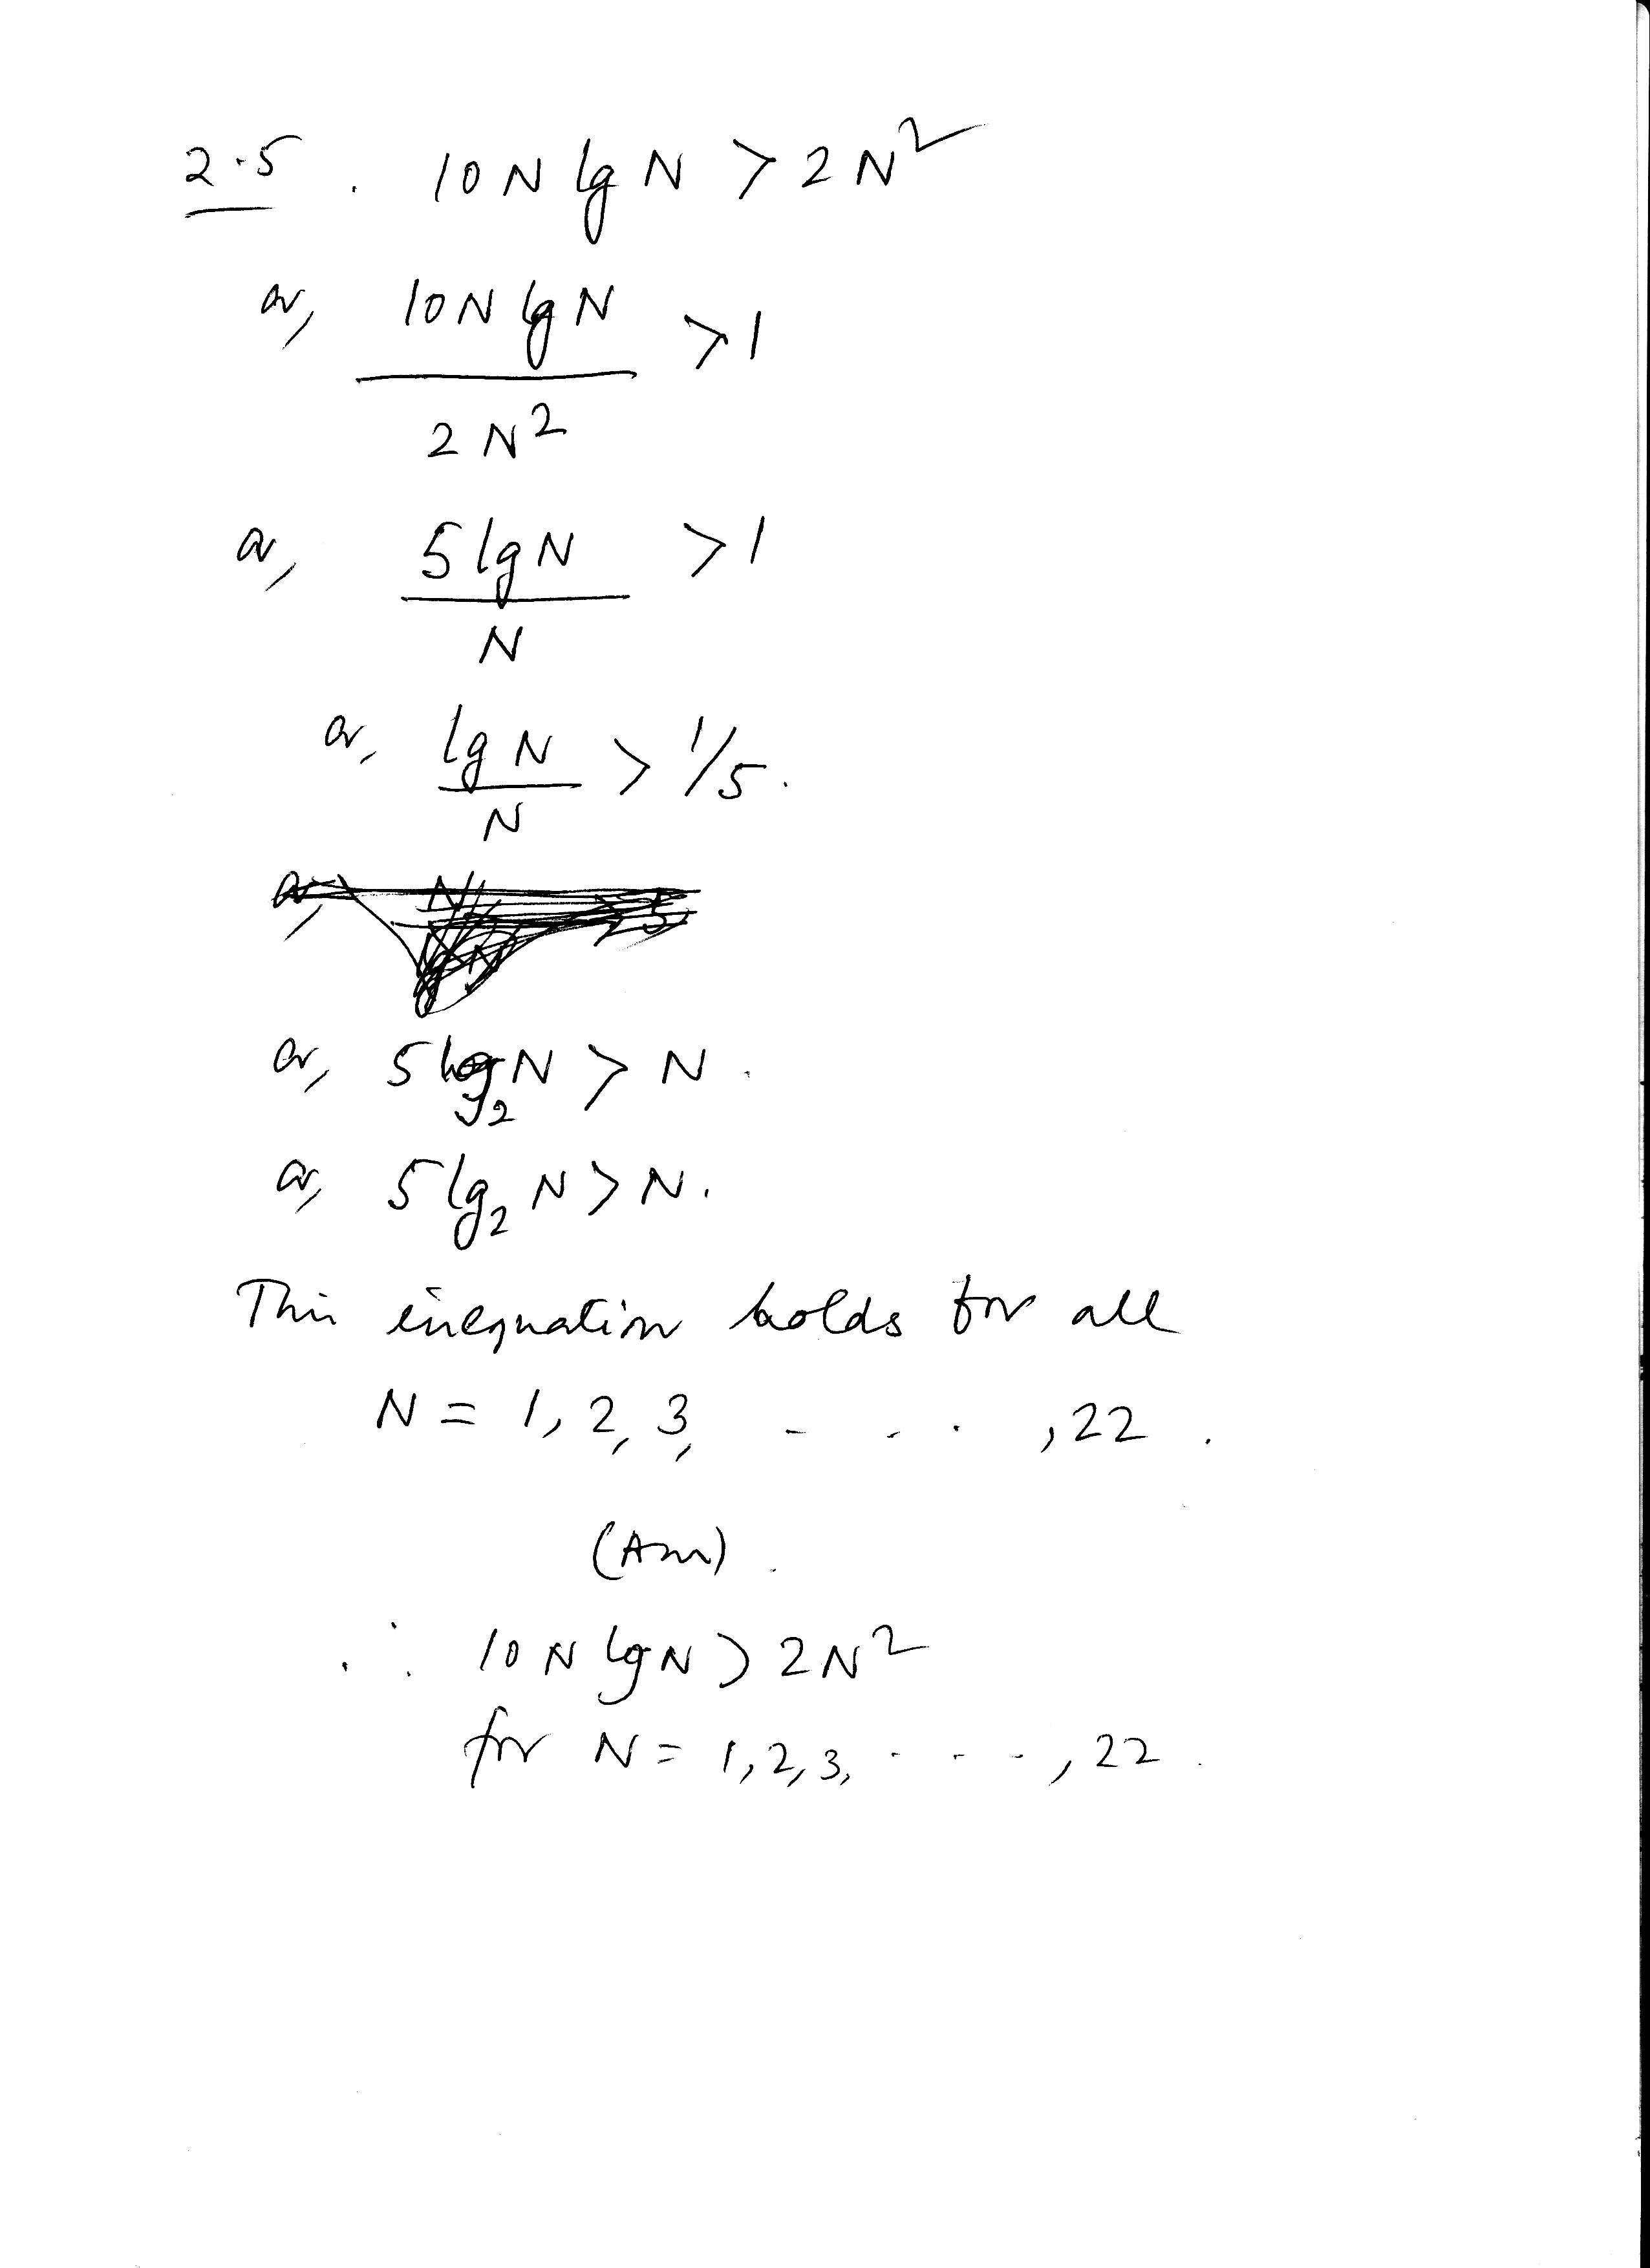 2.5. 10 N lg N > 2 N²
or, 10 N lg N / 2 N² > 1
or, 5 lg N / N > 1
or, lg N / N > 1/5.
or, 5 log₂ N > N.
or, 5 lg₂ N > N.
This inequation holds for all
N = 1, 2, 3, - . . , 22.
(Ans).
∴ 10 N lg N > 2 N²
for N = 1, 2, 3, - - - , 22.